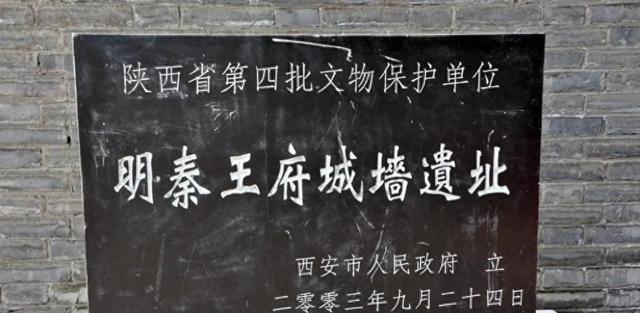 陕西省第四批文物保护单位
明秦王府城墙遺址
西安市人民政府 立
二零零三年九月二十四日